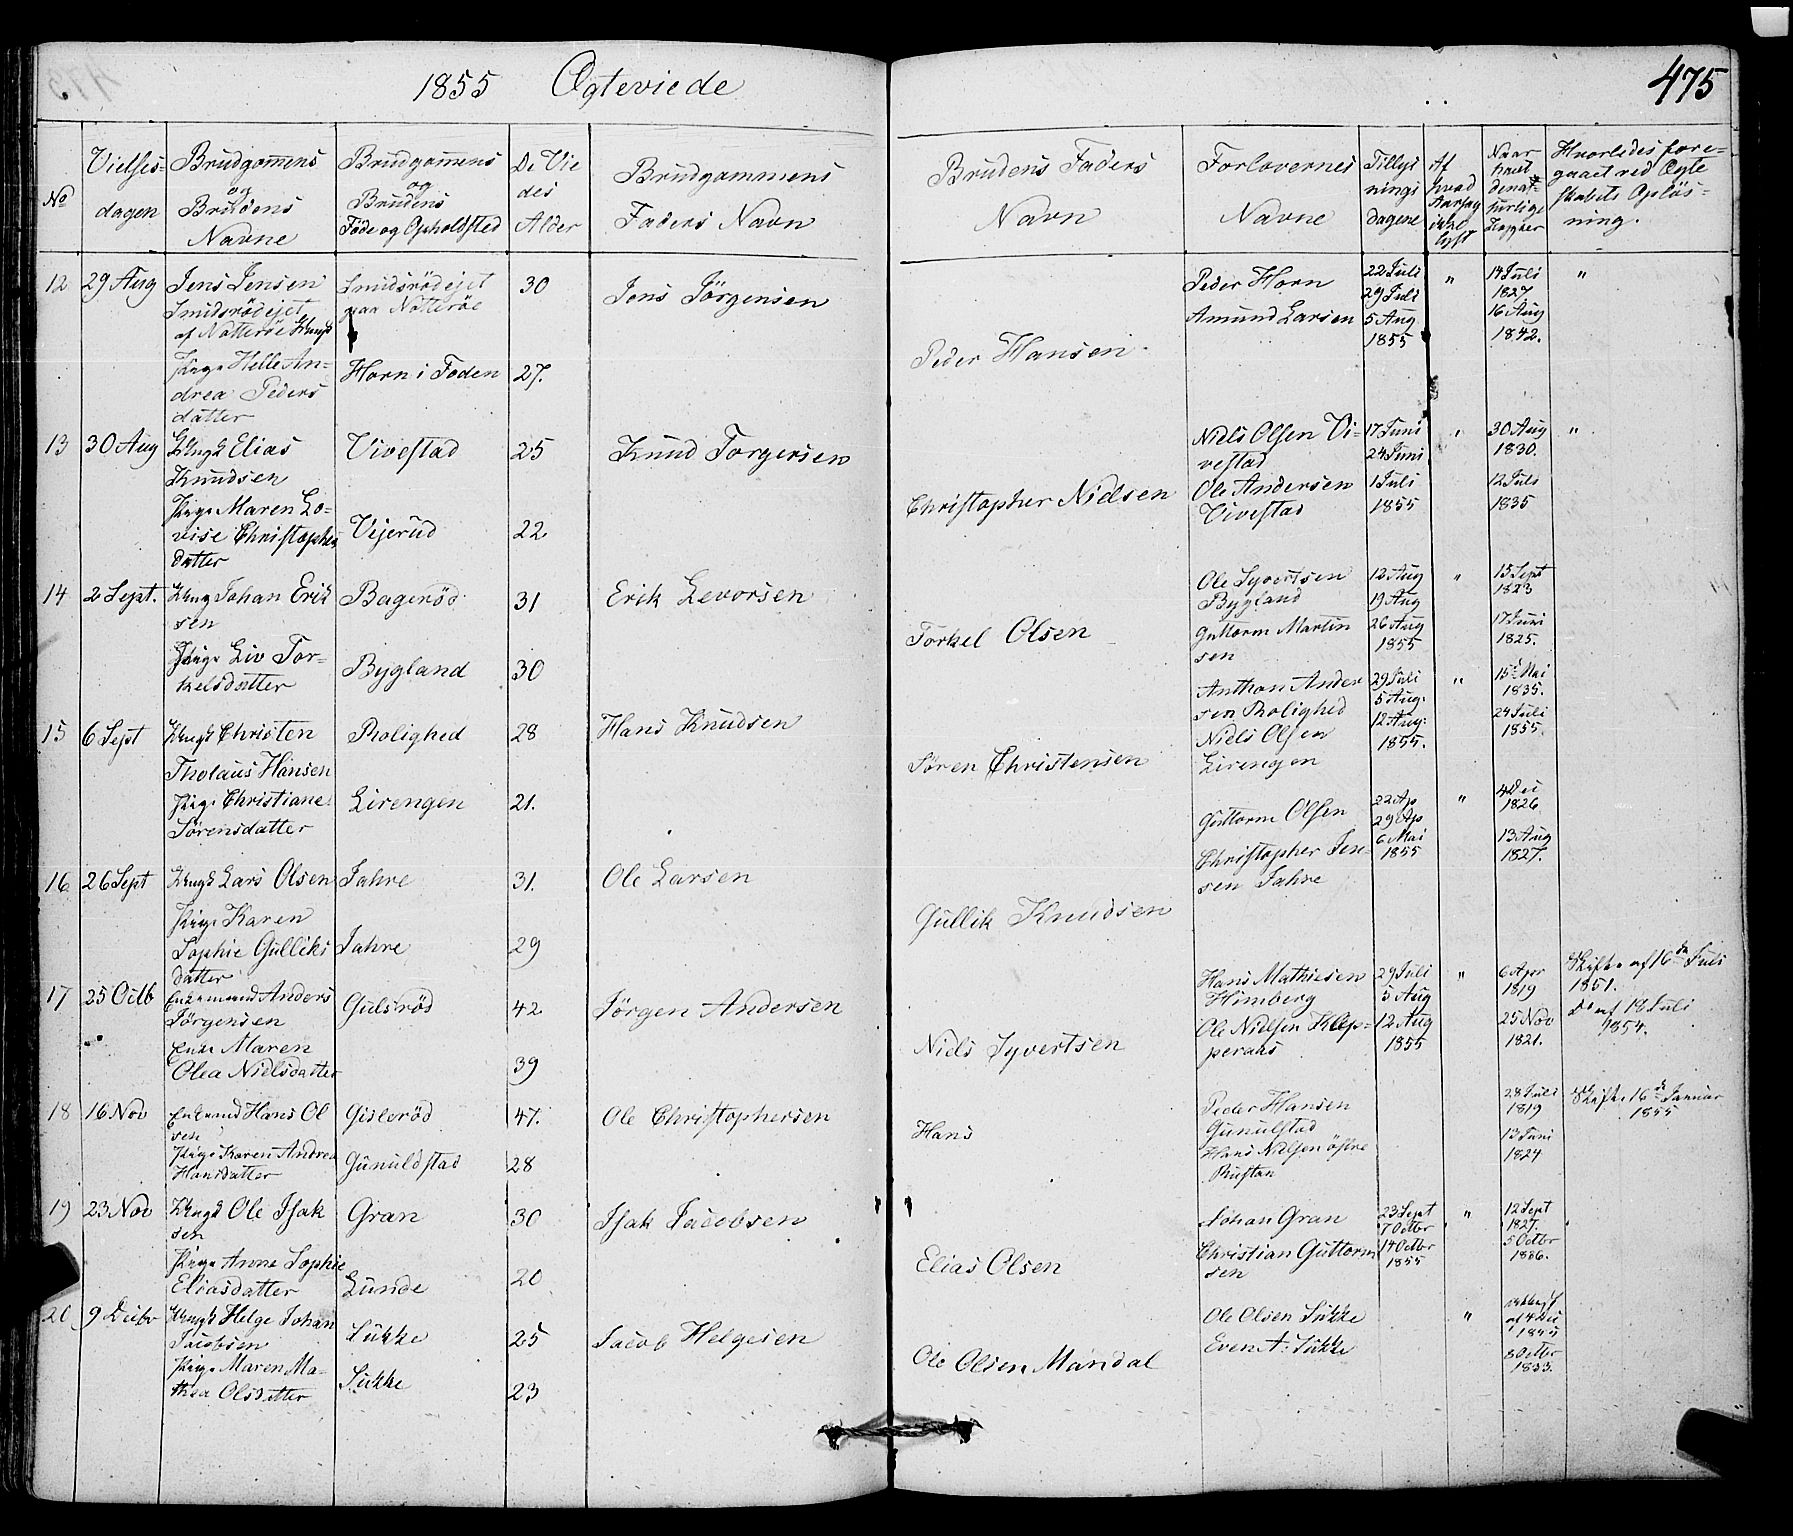 1855 Ægteviede
475
No
Vielses-
dagen
Brudgommens
og
Brudens
Navne
Brudgommens
og
Brudens
Føde og Opholdsted
De Vie
des
Alder
Brudgommens
Faders Navn
Brudens Faders
Navn
Forlovernes
Navne
Tillys
nings
dagene
Af
hvad
Aarsag
ikke
lyst
Naar
havt
de nat-
turlige
Kopper
Hvorledes fore-
gaaet ved Ægte
skabets Opløs-
ning.
12
29 Aug
Jens Jensen
Smidsrødejet
af Nøtterøe Ungk
Pige Helle An-
drea Peders
datter
Smidsrødejet
paa Nøtterøe
Horn i Foden
30
27.
Jens Jörgensen
Peder Hansen
Peder Horn
Amund Larsen
22 Juli
29 Juli
5 Aug
1855
"
14 Juli
1827
16 Aug
1842.
"
13
30 Aug
Ungk Elias
Knudsen
Pige Maren Lo-
vise Christopher
datter
Vivestad
Vejerud
25
22
Knud Torgersen
Christopher Nielsen
Niels Olsen Vi-
vestad
Ole Andersen
Vivestad
17 Juni
24 Juni
1 Juli
1855
"
30 Aug
1830.
12 Juli
1835
"
14
2 Sept.
Ungk Johan Erik
sen
Pige Liv Tor-
kelsdatter
Bagerød
Bygland
31
30
Erik Levorsen
Torkel Olsen
Ole Syvertsen
Bygland
Guttorm Martin
sen
12 Aug
19 Aug
26 Aug
1855
"
15 Sept
1823
17 Juni
1825.
15
6 Sept
Ungk Christen
Tholaus Hansen
Pige Christiane
Sørensdatter
Rolighed
Lirengen
28
21.
Hans Knudsen
Søren Christensen
Anthon Ander
sen Rolighed
Niels Olsen
Lirengen
29 Juli
5 Aug.
12 Aug.
1855.
"
15 Mai
1835.
24 Juli
1855.
16
26 Sept
Ungk Lars Olsen
Pige Karen
Sophie Gulliks
datter
Jahre
Jahre
31.
29
Ole Larsen
Gullik Knudsen
Guttorm Olsen
Christopher Jen-
sen Jahre
22 Ap
29 Ap
6 Mai
1855
"
4 Dec
1826
13 Aug
1827.
17
25 Octb
Enkemand Anders
Jörgensen
Enke Maren
Olea Nielsdatter
Gulsrød
42
39
Jörgen Andersen
Niels Syvertsen
Hans Mathiesen
Himberg
Ole Nielsen Klep-
peraas
29 Juli
5 Aug
12 Aug
1855
"
6 Apr
1819
25 Nov
1821.
Skifte af 16de Juli
1851.
Do af 18 Juli
1854.
18
16 Nov
Enkemd Hans Ol
sen
Pige Karen Andrea
Hansdatter
Gislerød
Gunuldstad
47.
28
Ole Christophersen
Hans
Peder Hansen
Gunulstad
Hans Nilsen østre
Rustan
28 Juli
1819
13 Juni
1824
Skifte 16de Januar
1855
19
23 Nov
Ungk Ole Isak
sen
Pige Anne Sophie
Eliasdatter
Gran
Lunde
30
20
Isak Jacobsen
Elias Olsen
Johan Gran
Christian Guttorm
sen
23 Sept
7 Octbr
14 Octbr
1855
"
12 Sept
1827.
5 Octbr
1836.
20
9 Decbr
Ungk Helge Johan
Jacobsen
Pige Maren Ma-
thea Olsdatter
Sukke
Sukke
25
23
Jacob Helgesen
Ole Olsen Mandal
Ole Olsen Sukke
Even A. Sukke
"
af 4 Dec
8 Octbr
1833.